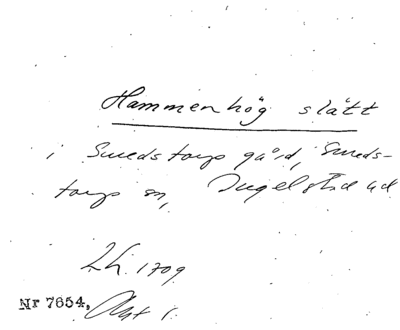 Hammenhög slätt
i Smedstorps gård, Smeds-
torps sn, Ingelstad hd
Lh. 1709
Nr 7654,